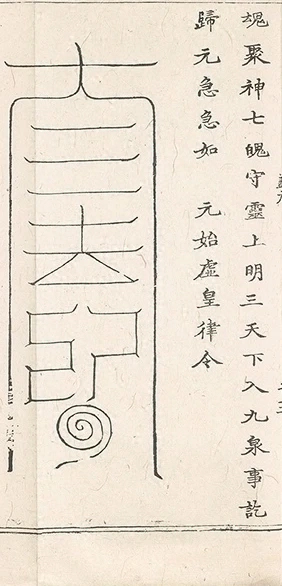 魂聚神七魄守靈上明三天下入九泉事訖
歸元急急如　元始虛皇律令